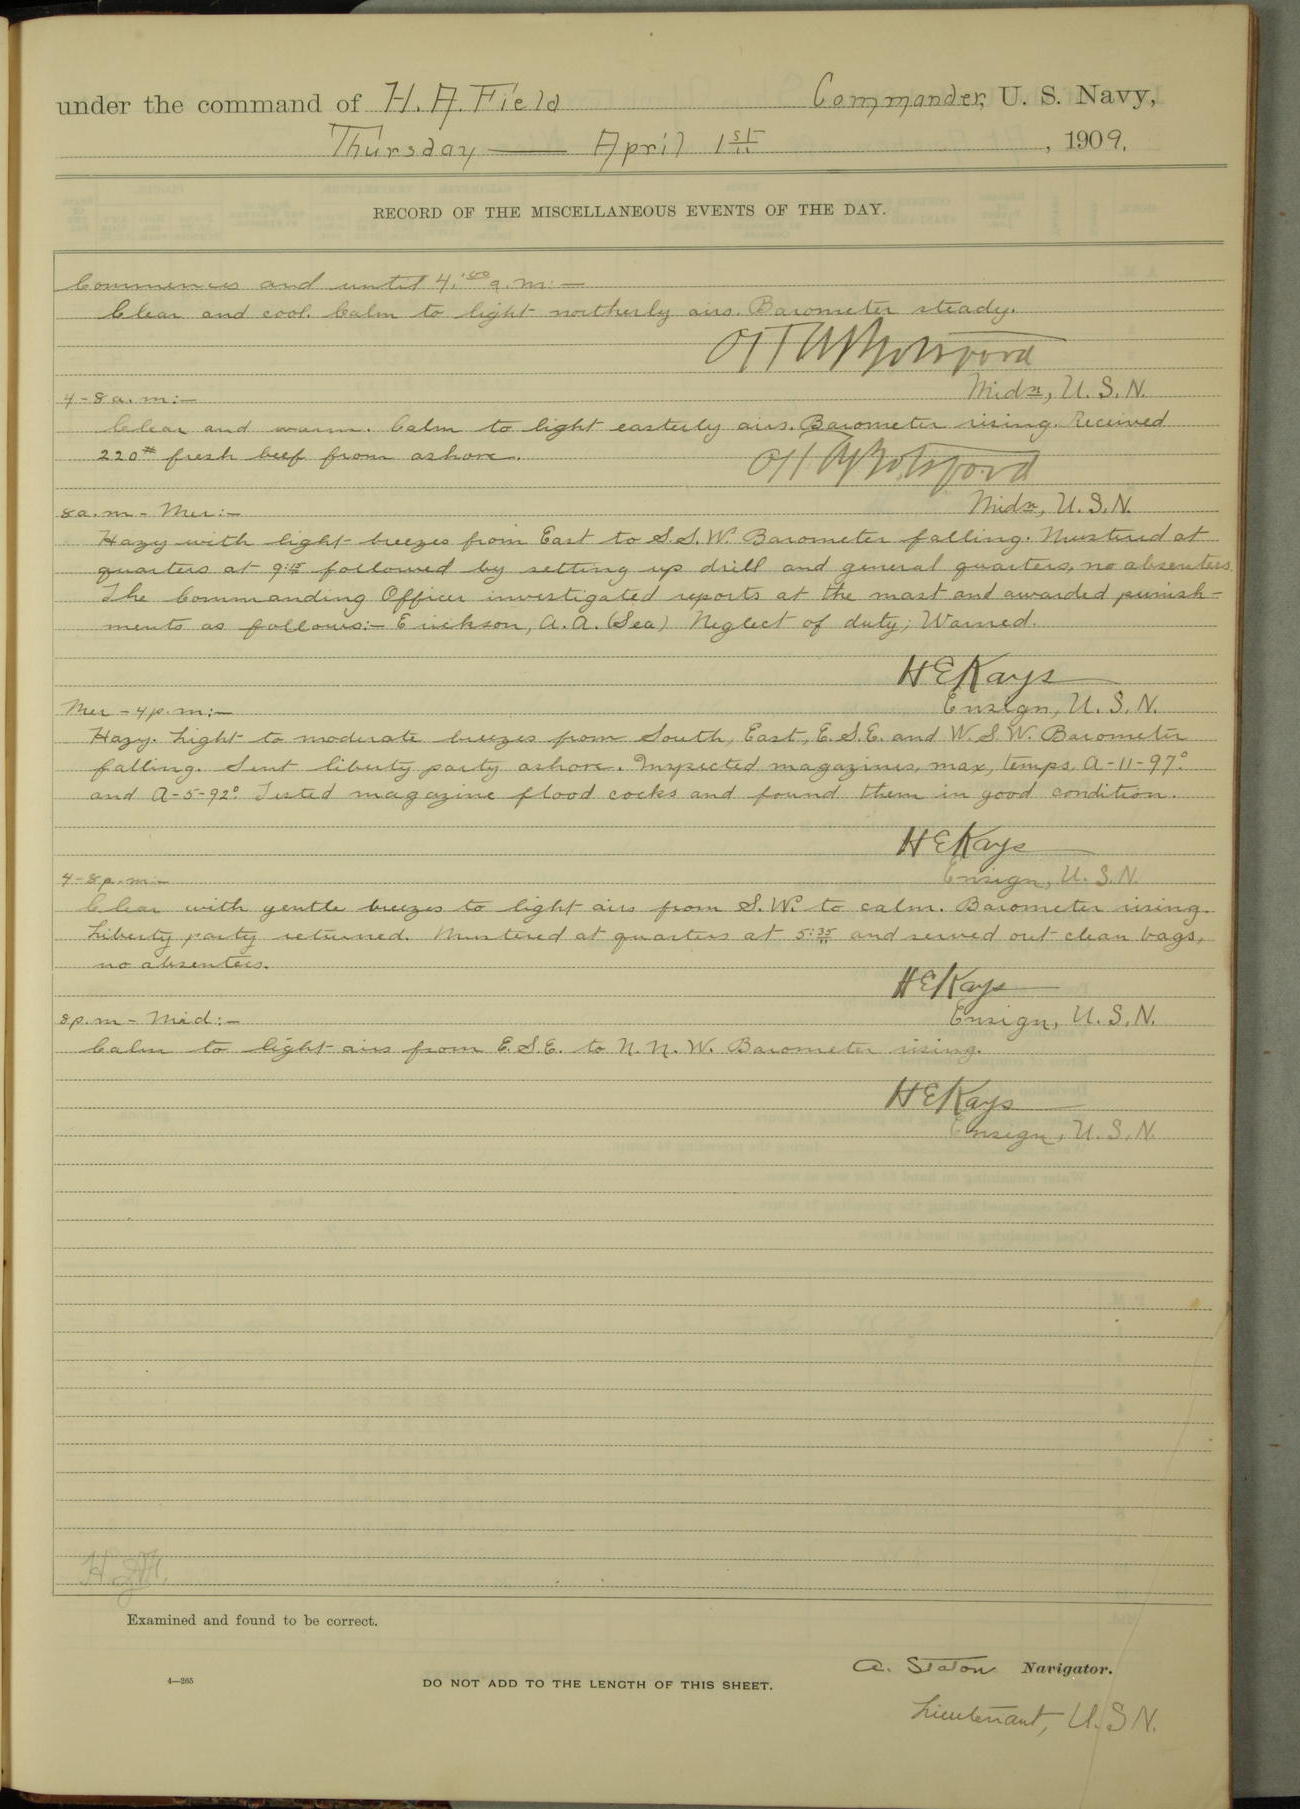 under the command of H. A. Field Commander, U. S. Navy,
Thursday — April 1st, 1909.
RECORD OF THE MISCELLANEOUS EVENTS OF THE DAY.
Commences and until 4:00 a.m:—
Clear and cool. Calm to light northerly airs. Barometer steady.
Botsford
Midn, U. S. N.
4-8 a.m:—
Clear and warm. Calm to light easterly airs. Barometer rising. Received
220# fresh beef from ashore.
Botsford
Midn, U. S. N.
8 a.m - Mer:—
Hazy with light breezes from East to S.S.W. Barometer falling. Mustered at
quarters at 9:15 followed by setting up drill and general quarters, no absentees.
The Commanding Officer investigated reports at the mast and awarded punish-
ments as follows:— Erickson, A. A. (Sea) Neglect of duty; Warned.
H E Kays
Ensign, U. S. N.
Mer - 4 p.m:—
Hazy. Light to moderate breezes from South, East, E.S.E. and W.S.W. Barometer
falling. Sent liberty party ashore. Inspected magazines, max, temps, A-11-97°
and A-5-92°. Tested magazine flood cocks and found them in good condition.
H E Kays
Ensign, U. S. N.
4-8 p.m:—
Clear with gentle breezes to light airs from S.W. to calm. Barometer rising.
Liberty party returned. Mustered at quarters at 5:35 and served out clean bags,
no absentees.
H E Kays
Ensign, U. S. N.
8 p.m - Mid:—
Calm to light airs from E.S.E. to N.N.W. Barometer rising.
H E Kays
Ensign, U. S. N.
Examined and found to be correct.
A. Staton Navigator.
4—265
DO NOT ADD TO THE LENGTH OF THIS SHEET.
Lieutenant, U. S. N.